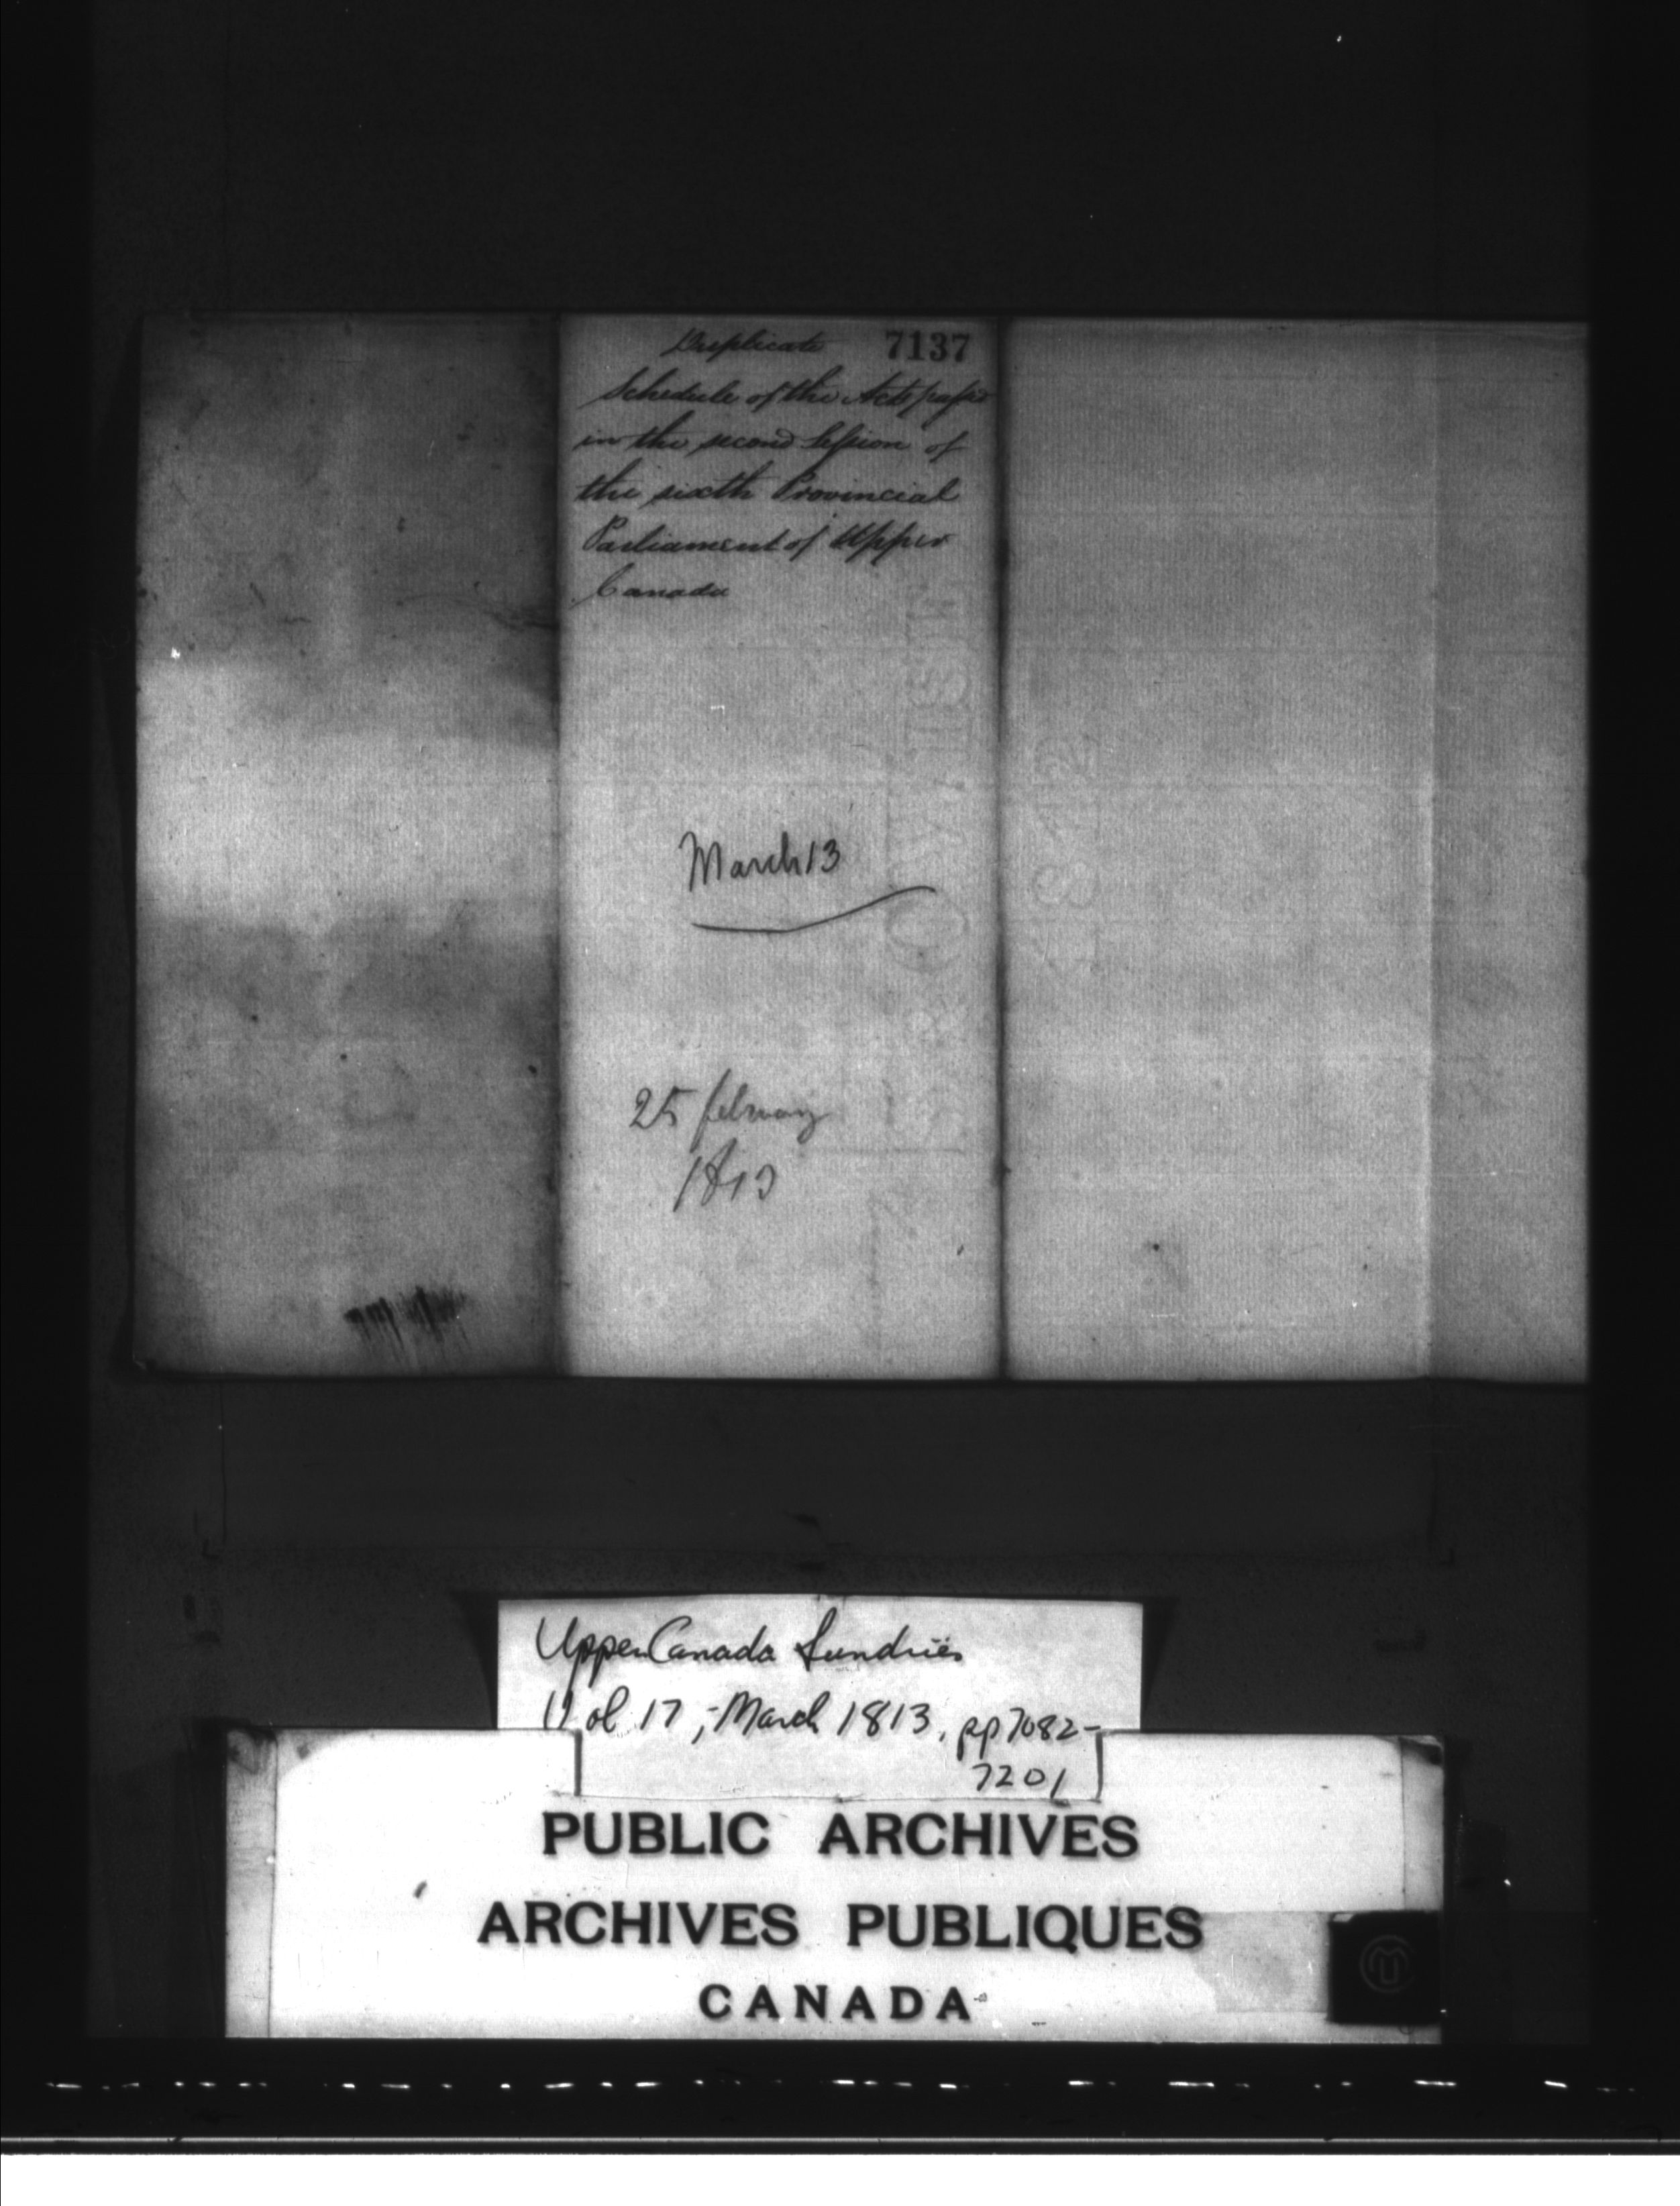 Duplicate 7137
Schedule of the Acts passed
in the second Session of
the sixth Provincial
Parliament of Upper
Canada
March 13
25 february
1813
1812
Upper Canada Sundries
Vol 17, March 1813, pp 7082-
7201
PUBLIC ARCHIVES
ARCHIVES PUBLIQUES
CANADA